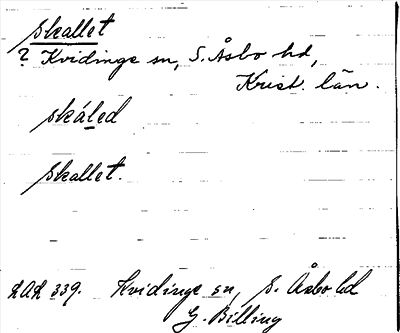 skallet
? Kvidinge sn, S. Åsbo hd,
Krist. län.
skáled
skallet.
LAL 339. Kvidinge sn, S. Åsbo hd
G. Billing